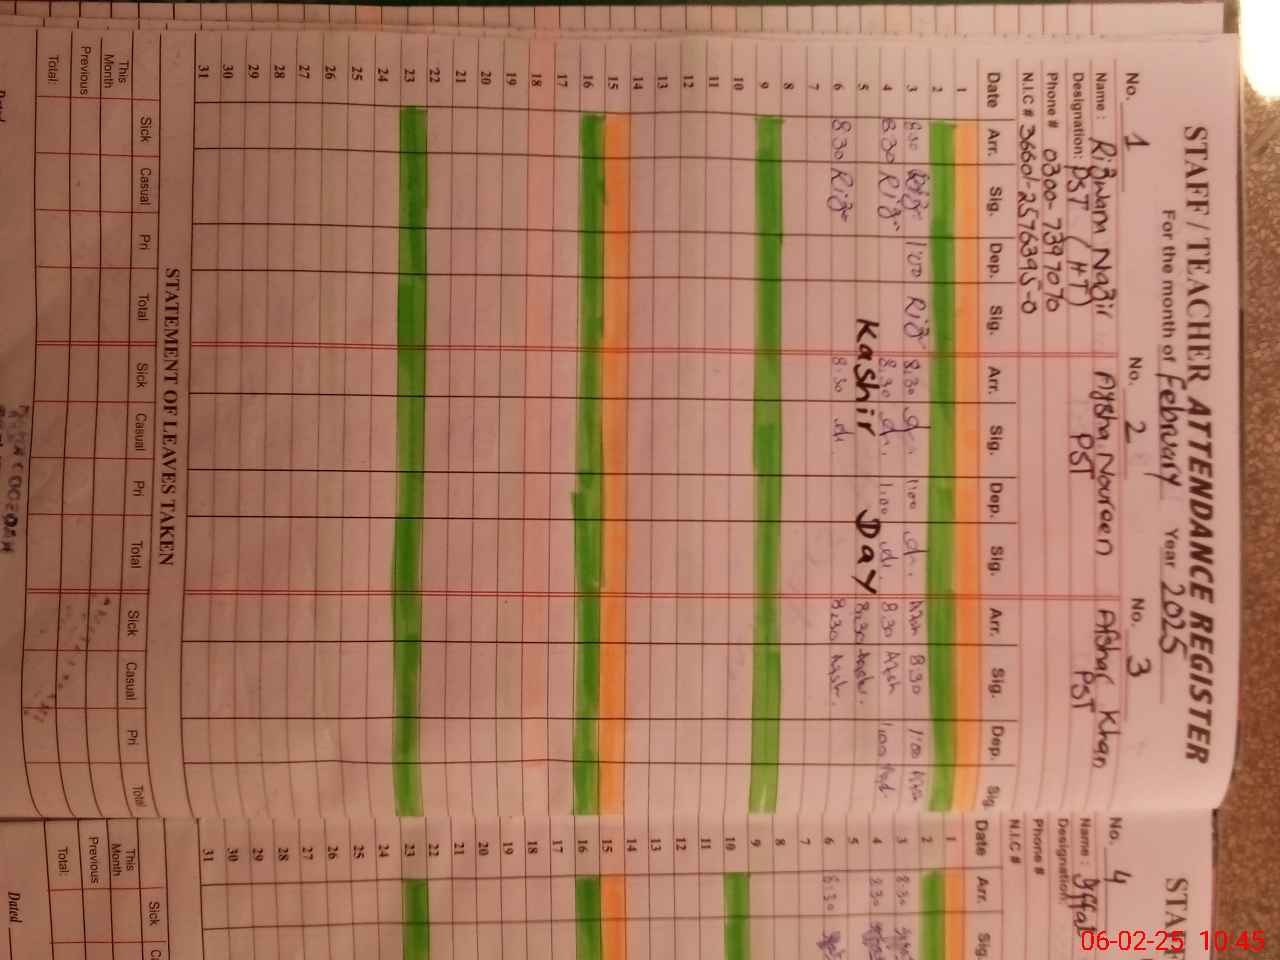 STAFF / TEACHER ATTENDANCE REGISTER
For the month of February Year 2025
No. 1 No. 2 No. 3
Name : Rizwan Nazir Aysha Noureen Afshar Khan
Designation: PST (HT) PST PST
Phone # 0300-7397070
N.I.C # 36601-2576395-0
Date Arr. Sig. Dep. Sig. Arr. Sig. Dep. Sig. Arr. Sig. Dep. Sig.
1
2
3 8:30 Riz 1:00 Riz 8.30 1:00 8:30 1:00
4 8:30 Riz 8.30 1:00 8:30 1:00
5 Kashir Day 8:30
6 8:30 Riz 8:30 8:30
7
8
9
10
11
12
13
14
15
16
17
18
19
20
21
22
23
24
25
26
27
28
29
30
31
STATEMENT OF LEAVES TAKEN
Sick Casual Pri Total Sick Casual Pri Total Sick Casual Pri Total
This Month
Previous
Total:
STAF
No. 4
Name :
Designation:
Phone #
N.I.C #
Date Arr. Sig.
1
2
3 8:30
4 8:30
5
6 8:30
7
8
9
10
11
12
13
14
15
16
17
18
19
20
21
22
23
24
25
26
27
28
29
30
31
Sick Ca
This Month
Previous
Total:
Dated
06-02-25 10:45